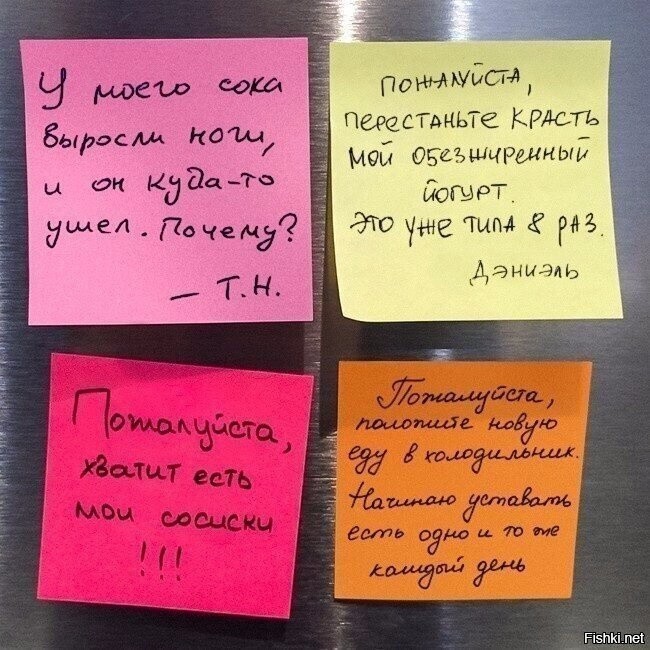 У моего сока
выросли ноги,
и он куда-то
ушел. Почему?
– Т.Н.
ПОЖАЛУЙСТА,
ПЕРЕСТАНЬТЕ КРАСТЬ
МОЙ ОБЕЗЖИРЕННЫЙ
ЙОГУРТ.
ЭТО УЖЕ ТИПА 8 РАЗ.
ДЭНИЭЛЬ
Пожалуйста,
хватит есть
мои сосиски
!!!
Пожалуйста,
положите новую
еду в холодильник.
Начинаю уставать
есть одно и то же
каждый день
Fishki.net